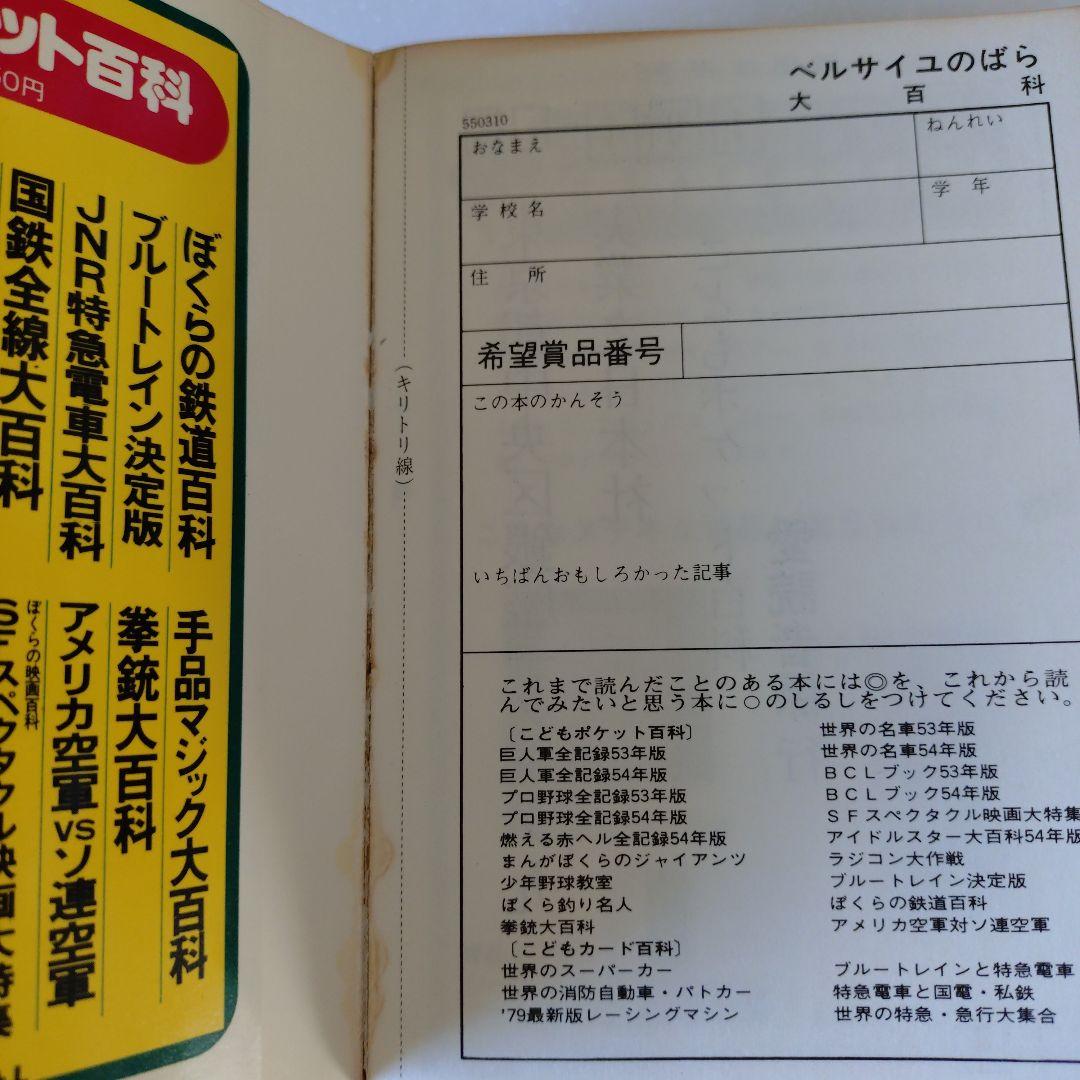 ット百科
50円
ぼくらの鉄道百科
ブルートレイン決定版
JNR特急電車大百科
国鉄全線大百科
手品マジック大百科
拳銃大百科
アメリカ空軍vsソ連空軍
ぼくらの映画百科
SFスペクタクル映画大特集
(キリトリ線)
ベルサイユのばら
大百科
550310
おなまえ
ねんれい
学校名
学年
住所
希望賞品番号
この本のかんそう
いちばんおもしろかった記事
これまで読んだことのある本には◎を、これから読
んでみたいと思う本に○のしるしをつけてください。
〔こどもポケット百科〕
巨人軍全記録53年版
巨人軍全記録54年版
プロ野球全記録53年版
プロ野球全記録54年版
燃える赤ヘル全記録54年版
まんがぼくらのジャイアンツ
少年野球教室
ぼくら釣り名人
拳銃大百科
〔こどもカード百科〕
世界のスーパーカー
世界の消防自動車・パトカー
'79最新版レーシングマシン
世界の名車53年版
世界の名車54年版
BCLブック53年版
BCLブック54年版
SFスペクタクル映画大特集
アイドルスター大百科54年版
ラジコン大作戦
ブルートレイン決定版
ぼくらの鉄道百科
アメリカ空軍対ソ連空軍
ブルートレインと特急電車
特急電車と国電・私鉄
世界の特急・急行大集合